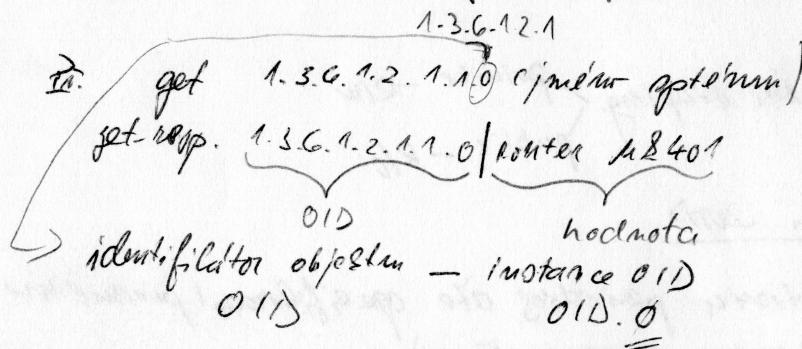 1.3.6.12.1
III. get 1.3.6.1.2.1.1.0 (jméno systému)
get-resp. 1.3.6.1.2.1.1.0 | router
OID hodnota
identifikátor objektu – instance OID
OID OID.0